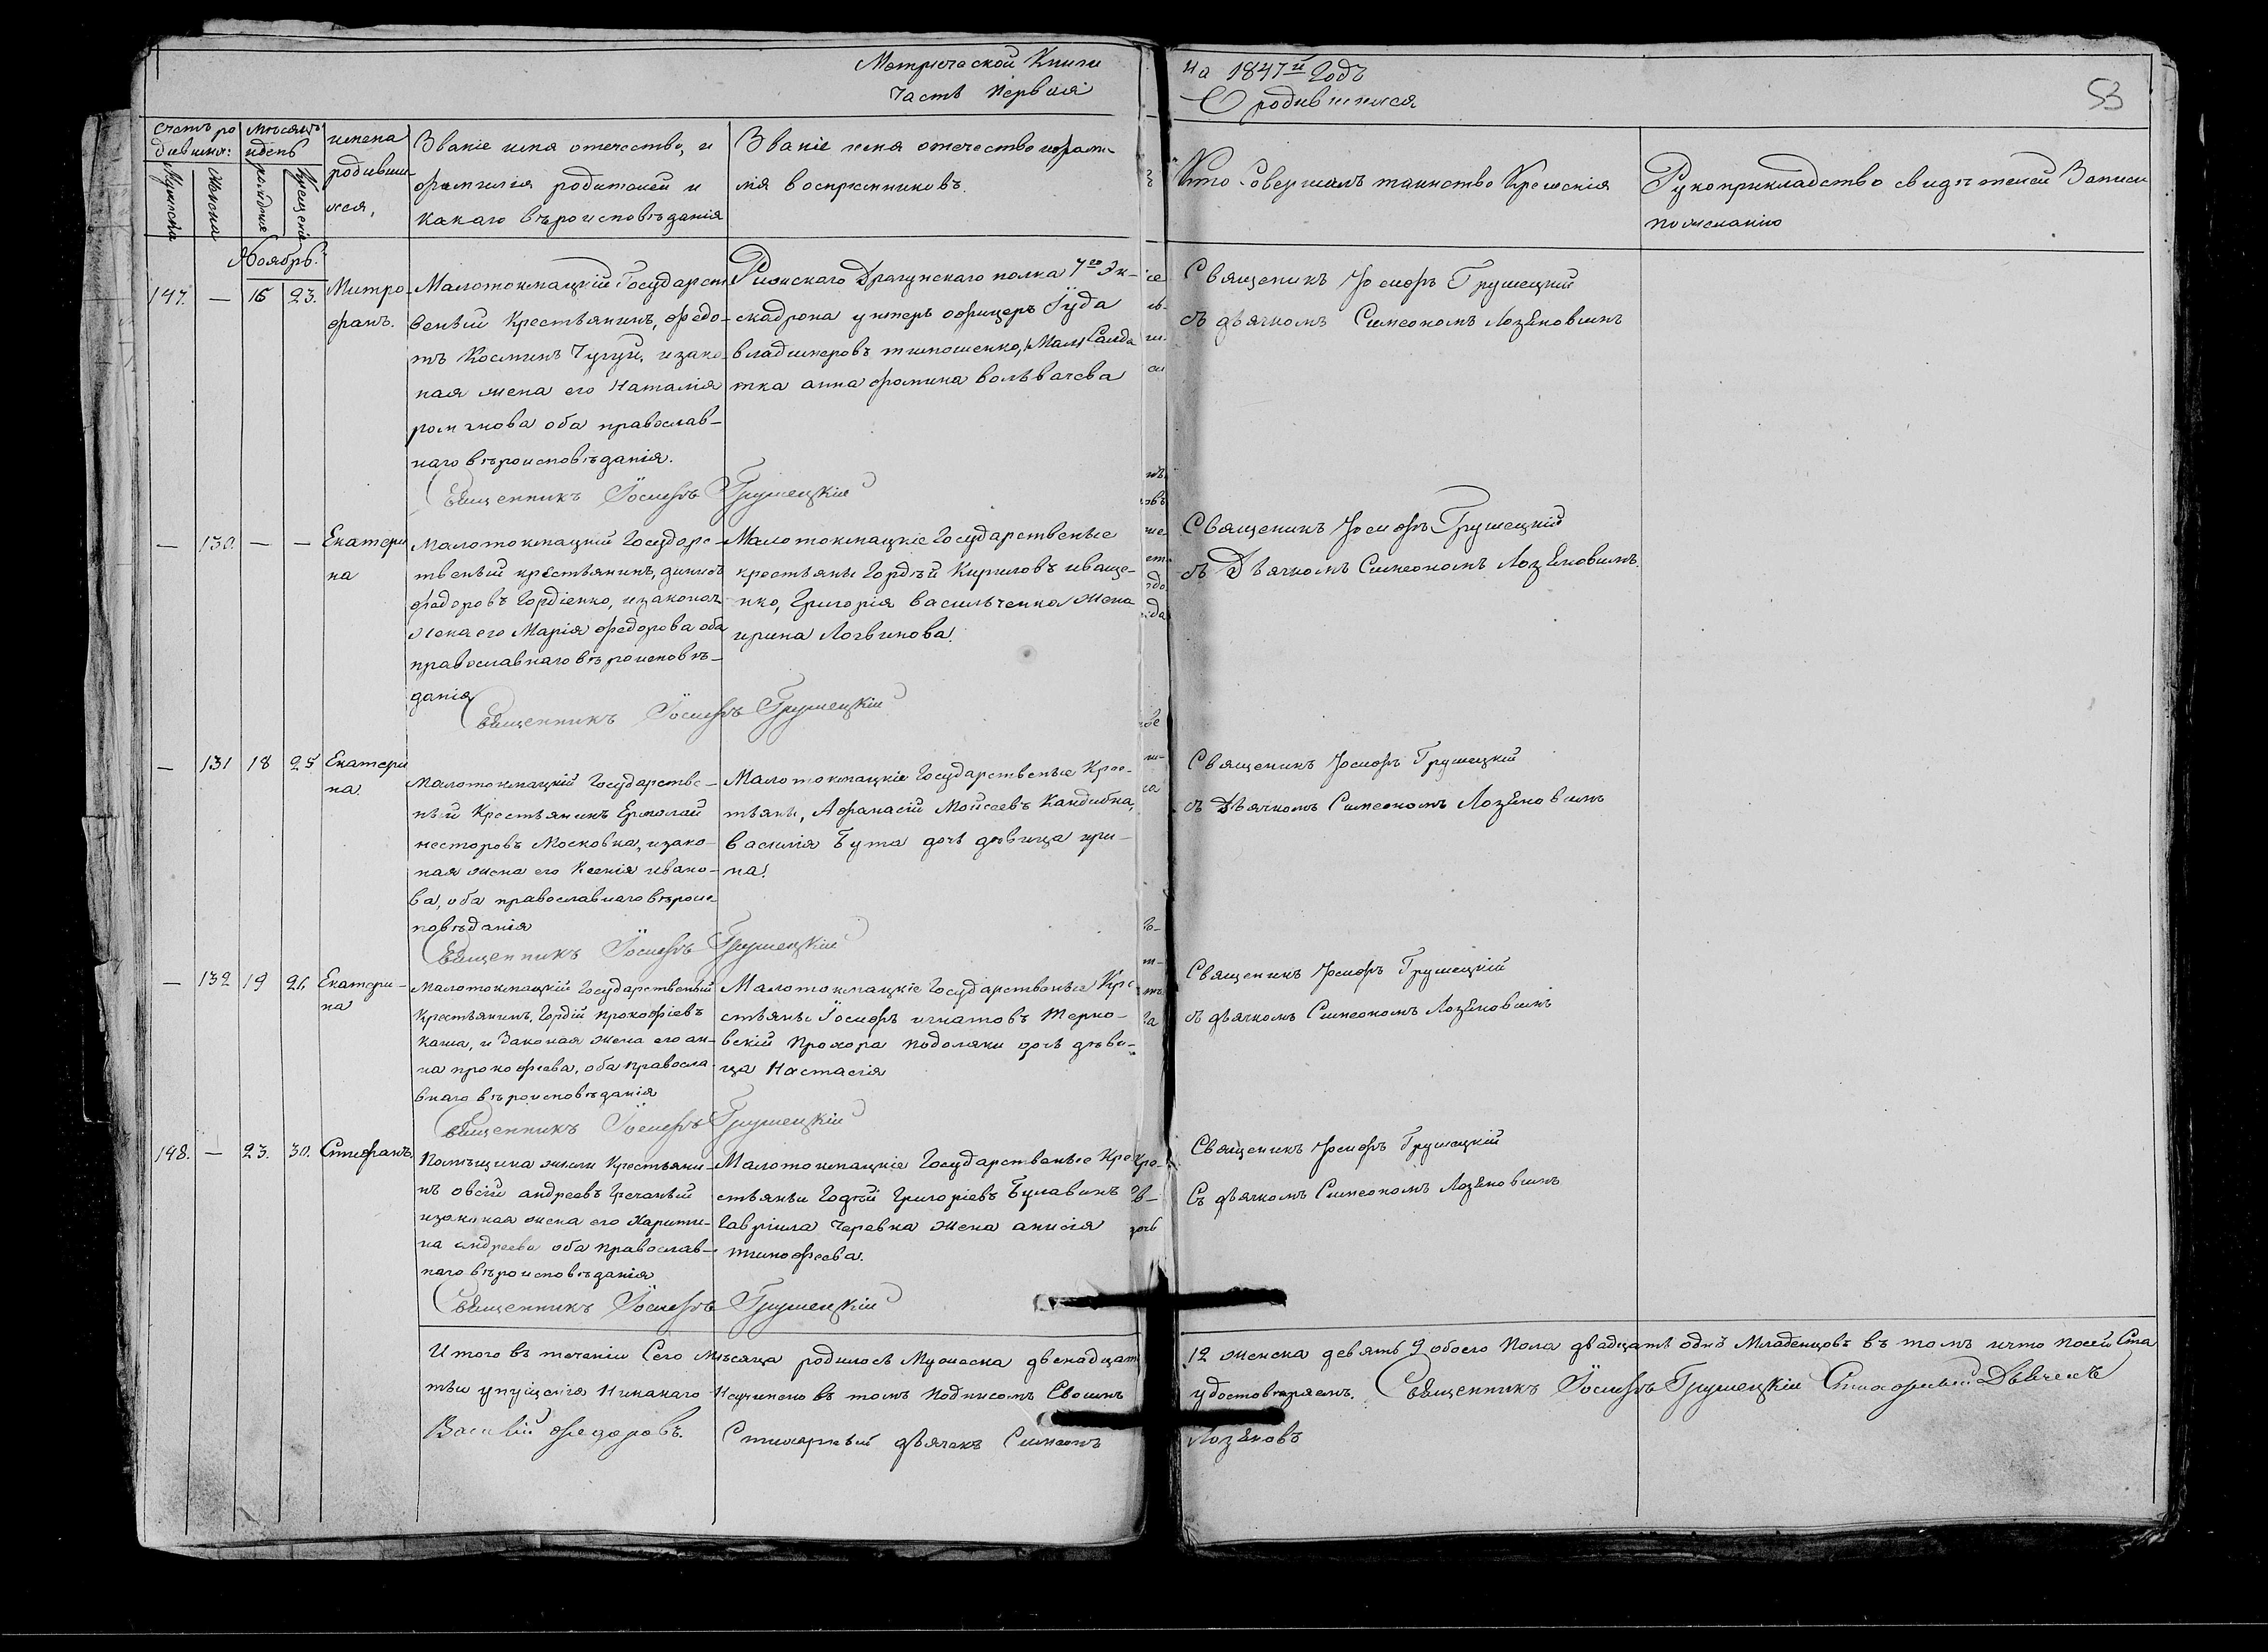 Метрической Книги
часть первая
на 1847й Годъ
О родившихся
53
счетъ ро
дивших:
Мужеска
Женска
Мѣсяцъ
и день
рождние
крещение
имена
родивши
хся,
Званіе имя отечество, и
фамилія родителей и
какаго вѣроисповѣданія
Званіе имя отечество и фами-
лія воспріемниковъ.
Кто Совершалъ таинство Крещенія
Рукоприкладство свидѣтелей Записи
пожеланію
Ноябрь.
147. — 16 23.
Митро-
фанъ.
Малотокмацкій Государст
венный Крестьянинъ, федо-
тъ Косминъ Чугуй, и зако-
ная жена его Наталія
романова оба православ-
наго вѣроисповѣданія.
Рижскаго Драгунскаго полка 7го Эк-
скадрона унтеръ офицеръ Іуда
владимеровъ тимошенко, Мал: Салда
тка анна фомина вольвачева
Священикъ Іосифъ Грушецкій
съ дьячкомъ Симеономъ Лозеновимъ
Священникъ Іосифъ Грушецкій
— 130. — —
Екатери
на
Малотокмацкій Государс-
твеный крестьянинъ, динисъ
федоровъ Гордіенко, и законая
жена его Марія федорова оба
православнаго вѣроисповѣ-
данія
Малотокмацкіе Государственые
крестьяны Гордѣй Кириловъ иваще-
нко, Григорія васильченка жена
ирина Логвинова.
Священикъ Іосифъ Грушецкій
съ Дьячкомъ Симеономъ Лозеновимъ.
Священникъ Іосифъ Грушецкій
— 131 18 25
Екатери
на.
Малотокмацкій Государстве-
ный Крестьянинъ Ермолай
несторовъ Московка, и зако-
ная жена его Ксенія ивано-
ва, оба православнаго вѣроис
повѣданія
Малотокмацкіе Государственые Крес-
тьяны, Афанасій Мойсеевъ Кандибка,
василія Бута дочь дѣвица ири-
на.
Священикъ Іосифъ Грушецкій
съ Дьячкомъ Симеономъ Лозеновимъ
Священникъ Іосифъ Грушецкій
— 132 19 26
Екатери-
на
Малотокмацкій Государственый
Крестьянинъ, Гордій прокофіевъ
каша, и Законая жена его ан-
на прокофева, оба правосла-
внаго вѣроисповѣданія
Малотокмацкіе Государственые Кре
стьяны Іосифъ игнатовъ Терно-
вскій Прохора Подоляки дочь дѣви-
ца Настасія
Священикъ Іосифъ Грушецкій
съ дьячкомъ Симеономъ Лозеновимъ
Священникъ Іосифъ Грушецкій
148. — 23. 30.
Стифанъ
Помѣщика Крестьяни-
нъ овсій андреевъ Гречаный
и законая жена его Харити-
на андреева оба православ-
наго вѣроисповѣданія
Малотокмацкіе Государственые Кре
стьяны Годѣй Григоріевъ Булавинъ
Гавріила Черевка жена анисія
тимофеева.
Священикъ Іосифъ Грушецкій
Съ дьячкомъ Симеономъ Лозеновимъ
Священникъ Іосифъ Грушецкій
Итого въ теченіи Сего Мѣсяца родилось Мужеска двенадцать 12 женска девять 9 обоего Пола двадцать одно Младенцовъ въ томъ что посей Ста
тьи упущенія Никакаго Неучинено въ томъ Подписомъ Своимъ удостовѣряемъ. Священникъ Іосифъ Грушецкій Стихарный Дьячекъ
Василій федоровъ. Стихарный дьячекъ Симеонъ Лозеновъ